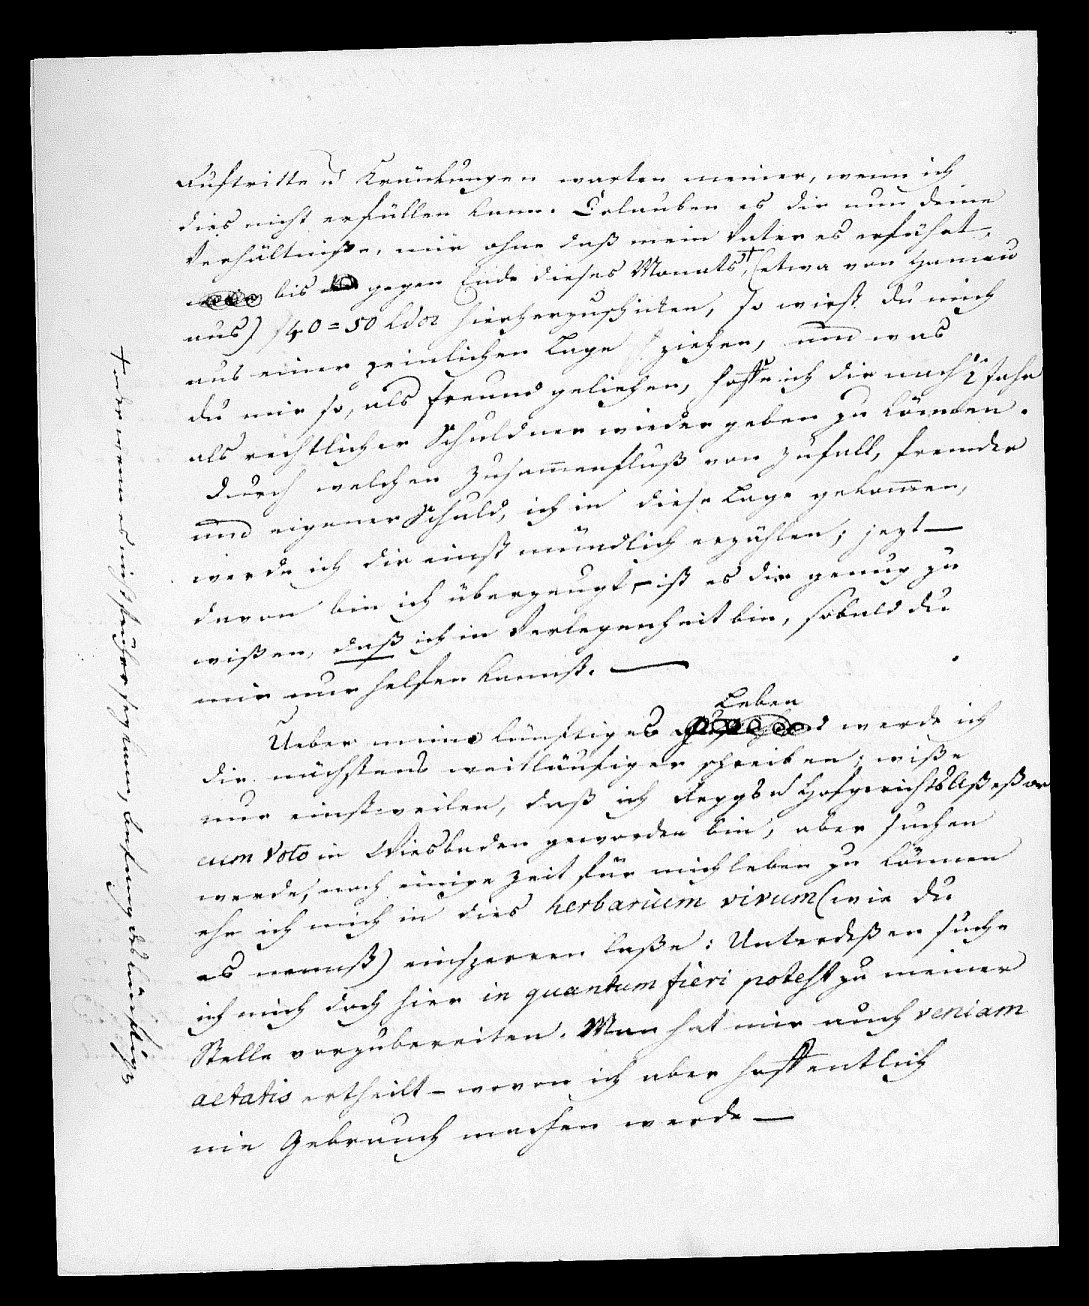 Auftritte u Kränkungen warten meiner, wenn ich
dies nicht erfüllen kann. Erlauben es dir nun deine
Verhältniße, mir ohne daß mein Vater es erfährt,
bis gegen Ende dieses Monats † (etwa von Hanau
aus) 40=50 Ldor hierherzuschicken, so wirst du mich
aus einer peinlichen Lage ziehen, und was
du mir so, als Freund geliehen, hoffe ich dir nach Jahr
als rechtlicher Schuldner wieder geben zu können.
Durch welchen Zusam̅enfluß von Zufall, fremder
und eigener Schuld, ich in diese Lage gekom̅en,
werde ich dir einst mündlich erzählen; jezt —
davon bin ich überzeugt — ist es dir genug zu
wißen, daß ich in Verlegenheit bin, sobald du
mir nur helfen kannst. —
Leben
Ueber mein künftiges werde ich
dir nächstens weitläufiger schreiben; wiße
nur einstweilen, daß ich Hofgerichts Aßeßor
cum Voto in Wiesbaden geworden bin, aber suchen
werde, noch einige Zeit für mich leben zu können
ehe ich mich in dies herbarium vivum (wie du
es nennst) einsperren laße: Unterdeßen suche
ich mich doch hier in quantum fieri potest zu meiner
Stelle vorzubereiten. Man hat mir auch veniam
aetatis ertheilt — wovon ich aber hoffentlich
nie Gebrauch machen werde —
† oder wenn es nicht früher seyn kann, Anfang des künftigen